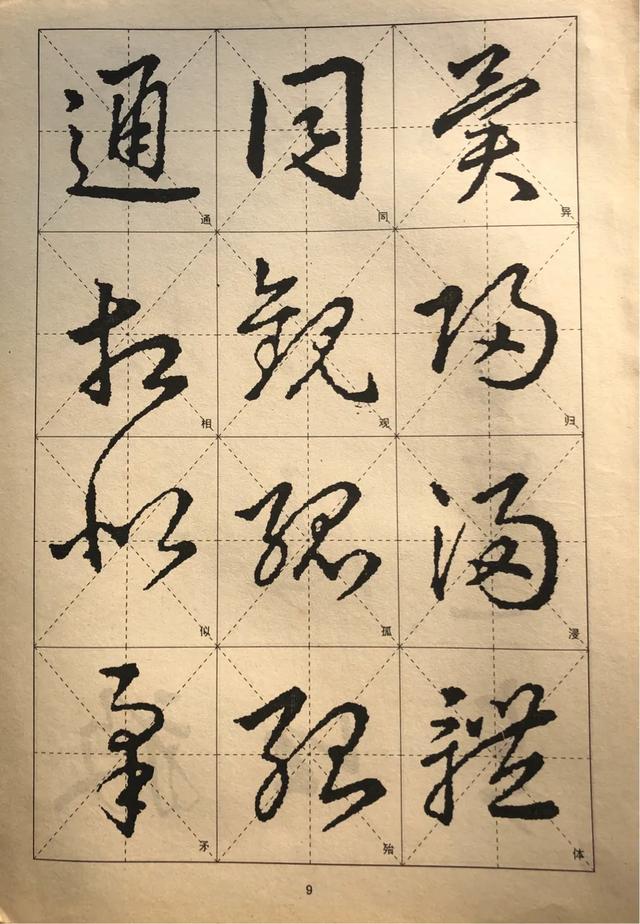 異歸漫體
异归漫体
同觀孤殆
同观孤殆
通相似矛
通相似矛
9